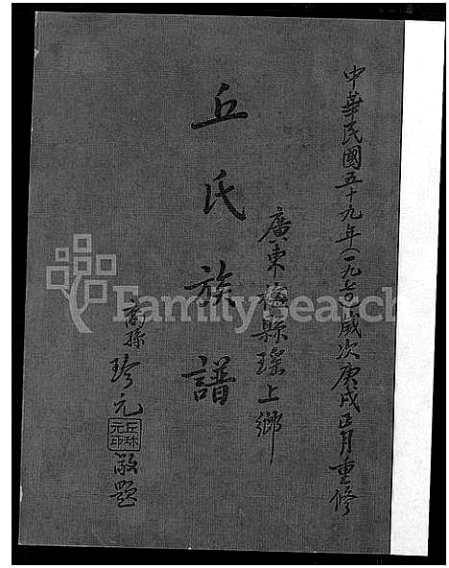 中華民國五十九年(一九七〇)歲次庚戌正月重修
廣東梅縣瑤上鄉
丘氏族譜
裔孫珍元敬題
FamilySearch